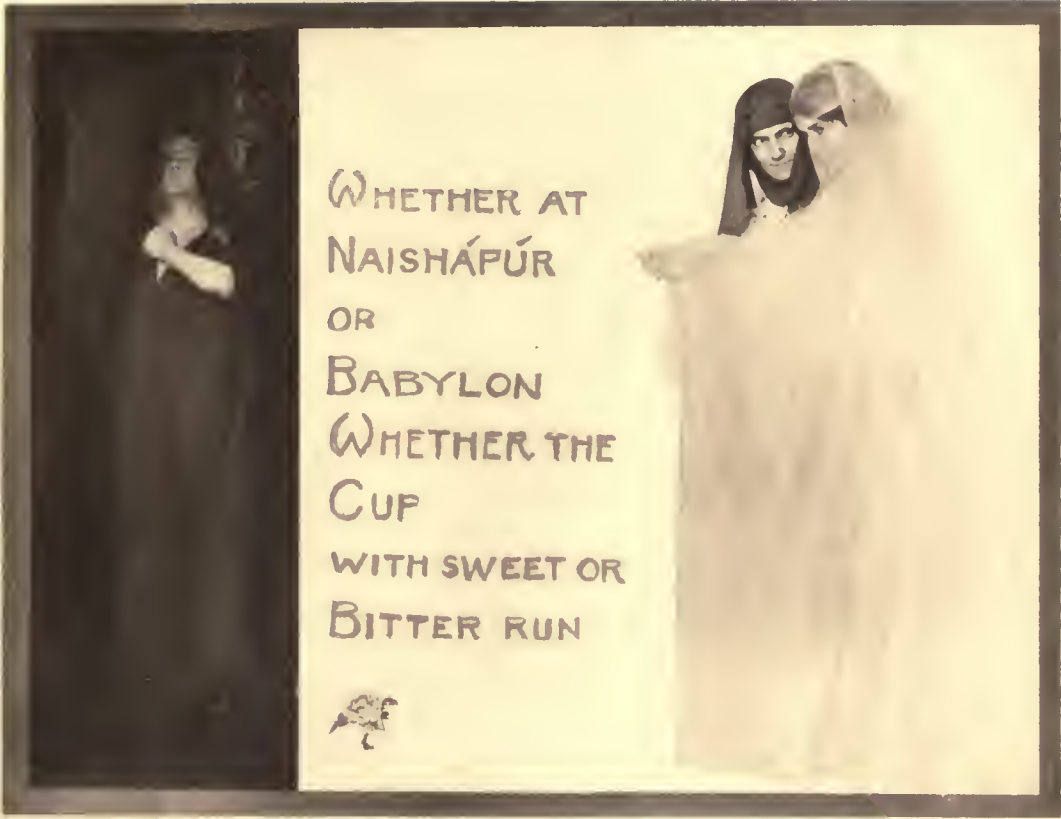 WHETHER AT
NAISHÁPÚR
OR
BABYLON
WHETHER THE
CUP
WITH SWEET OR
BITTER RUN